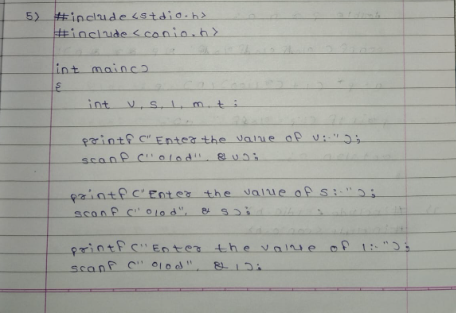 5) #include <stdio.h>
#include <conio.h>
int main()
{
int v, s, l, m, t;
printf("Enter the value of v:");
scanf("%d", &v);
printf("Enter the value of s:-");
scanf("%d", &s);
printf("Enter the value of l:-");
scanf("%d", &l);